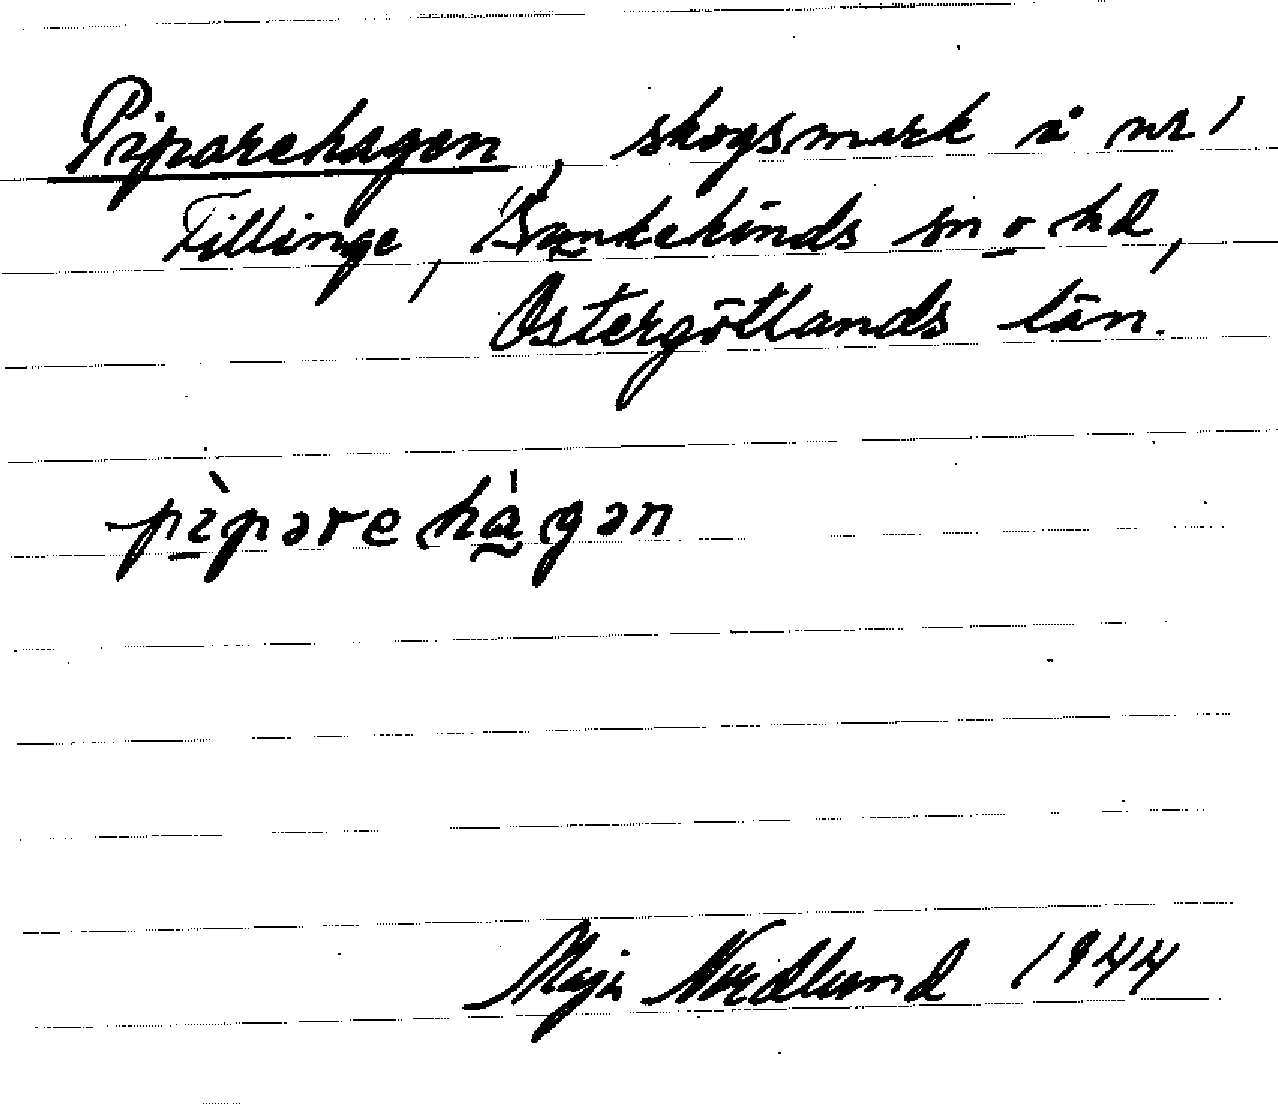 Piparehagen, skogsmark å nr 1
Fillinge, Bankekinds sn o hd,
Östergötlands län.
pìparehágen
Maja Nordlund 1944